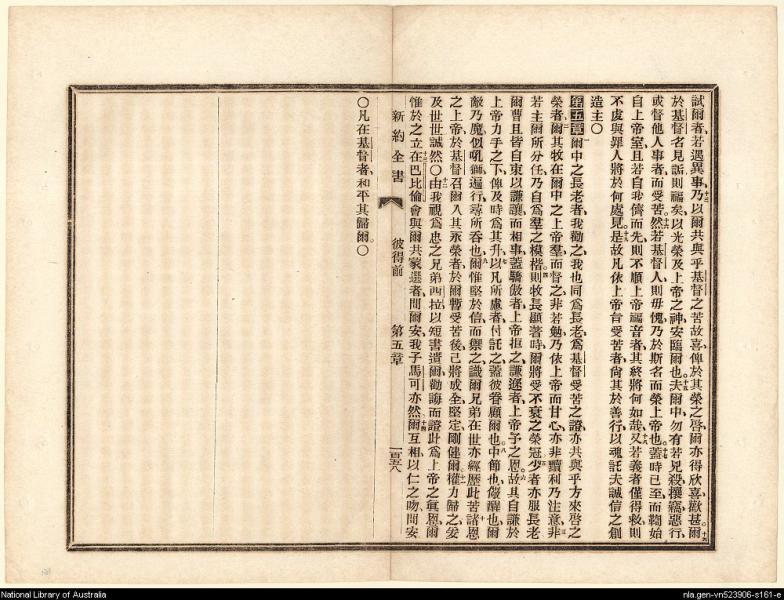 試爾者若遇異事乃以爾共與乎基督之苦故喜俾於其榮之啓爾亦得欣喜歡甚爾
於基督名見詬則福矣以光榮及上帝之神安臨爾也夫爾中勿有若兄殺攘竊惡行
或督他人事者而受苦然若基督人則毋愧乃於斯名而榮上帝也蓋時已至而鞫始
自上帝室且若自我儕而先則不順上帝福音者其終將何如哉又若義者僅得救則
不虔與罪人將於何處見是故凡依上帝旨受苦者尚其於善行以魂託夫誠信之創
造主〇
第五章爾中之長老者我勸之我也同爲長老爲基督受苦之證亦共與乎方來啓之
榮者爾其牧在爾中之上帝羣而督之非若勉乃依上帝而甘心亦非黷利乃注意非
若主爾所分任乃自爲羣之模楷則牧長顯著時爾將受不衰之榮冠少者亦服長老
爾曹且皆自束以謙讓而相事蓋驕傲者上帝拒之謙遜者上帝予之恩故其自謙於
上帝力手之下俾及時爲其升以凡所慮者付託之蓋彼眷顧爾也中節也儆醒也爾
敵乃魔似吼獅遍行尋所吞也爾惟堅於信而禦之識爾兄弟在世亦經歷此苦諸恩
之上帝於基督召爾入其永榮者於爾暫受苦後己將成全堅定剛健爾權力歸之爰
及世世誠然〇由我視爲忠之兄弟西拉以短書遣爾勸誨而證此爲上帝之眞恩爾
惟於之立在巴比倫會與爾共蒙選者問爾安我子馬可亦然爾互相以仁之吻問安
新約全書 彼得前 第五章 一百五八
〇凡在基督者和平其歸爾〇
National Library of Australia
nla.gen-vn523906-s161-e